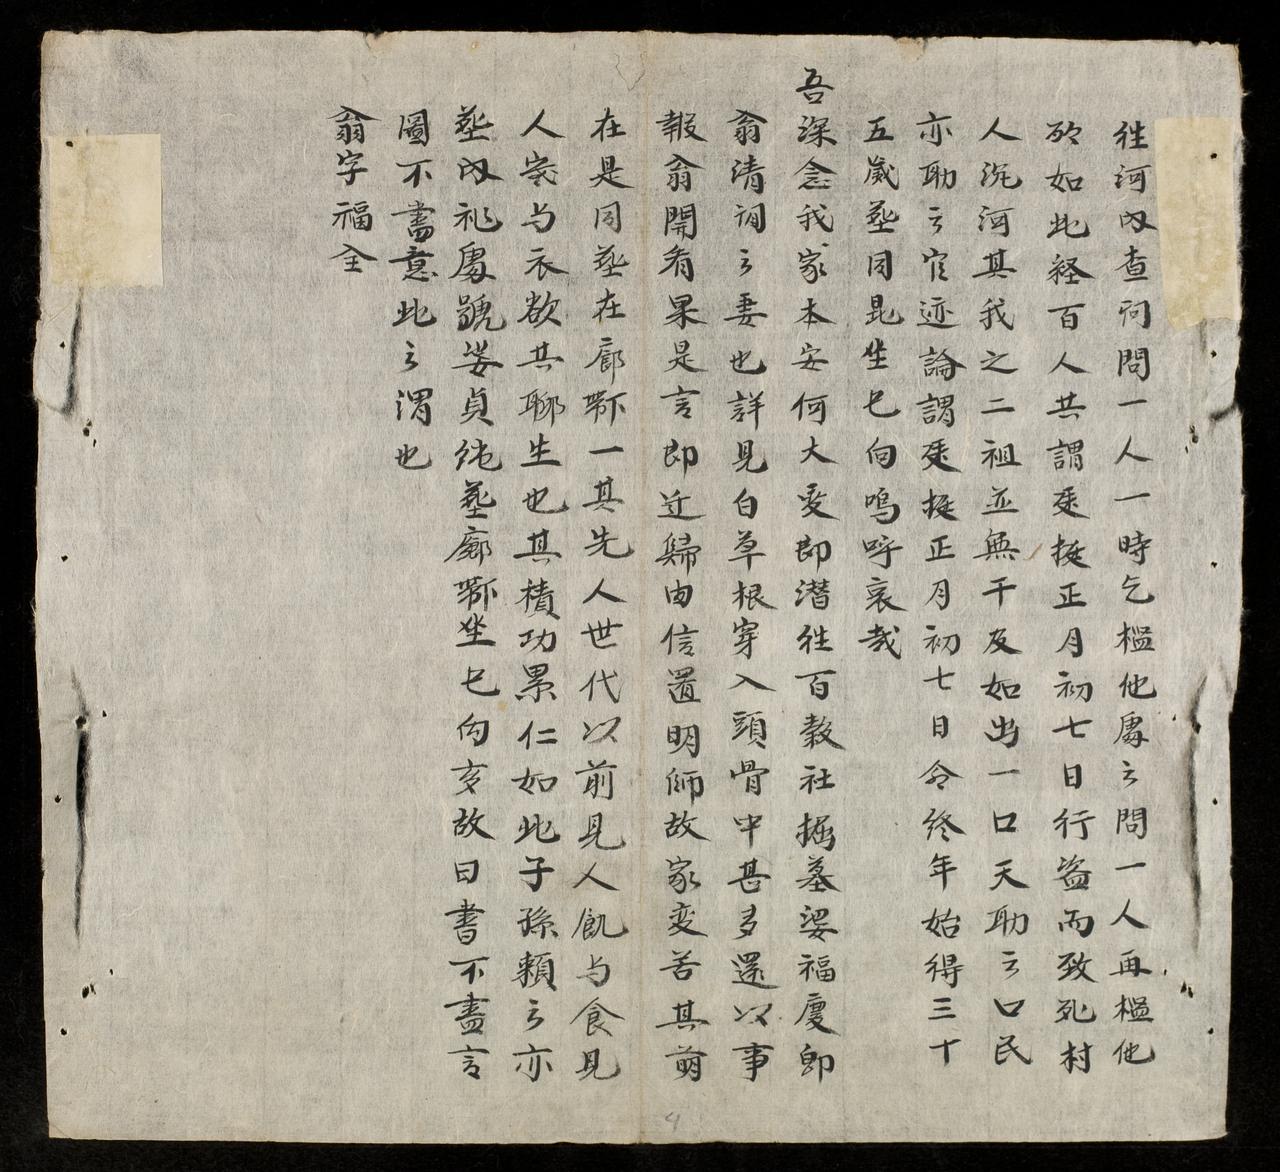 往河內查祠問一人一時乞榅他處云問一人再榅他
所如此経百人共謂廷挺正月初七日行盗而致死村
人沉河其我之二祖並無干及如出一口天助云口民
亦助云官迹論謂廷挺正月初七日令終年始得三十
五歲墓同昆坐巳向嗚呼哀哉
吾深念我家本安何大变即潜往百穀社掘墓娑福慶即
翁清詞云妻也詳見白草根穿入頭骨中甚多還以事
報翁開看果是言即迁歸由信置明師故家変苦其萠
在是同墓在廊鄹一其先人世代以前見人飢与食見
人寒与衣欲共聊生也其積功累仁如此子孫頼云亦
墓內祀處號娑貞純墓廊鄹坐巳向亥故曰書不盡言
圖不盡意此云渭也
翁字福全
4